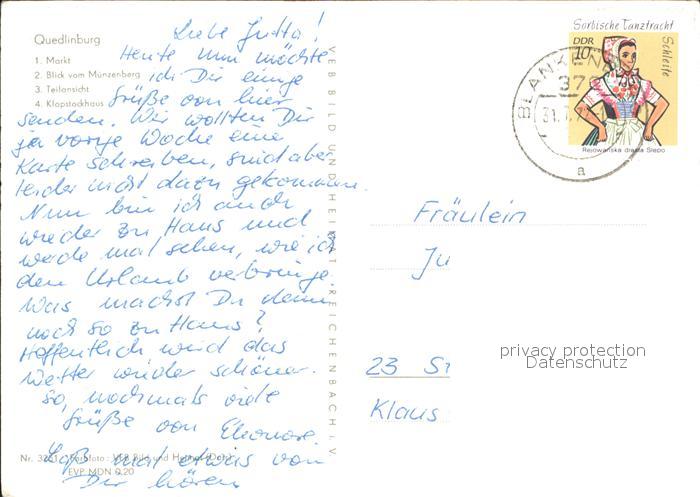 Quedlinburg
1. Markt
2. Blick vom Münzenberg
3. Teilansicht
4. Klopstockhaus
Liebe Jutta!
Heute nun möchte
ich Dir einige
Grüße von hier
senden. Wir wollten Dir
ja vorige Woche eine
Karte schreiben, sind aber
leider nicht dazu gekommen.
Nun bin ich auch
wieder zu Haus und
werde mal sehen, wie ich
den Urlaub verbringe.
Was machst Du denn
noch so zu Haus?
Hoffentlich wird das
Wetter wieder schöner.
So, nochmals viele
Grüße von Eleonore.
Laß mal etwas von
Dir hören
Nr. Farbfoto: VEB Bild und Heimat
EVP MDN 0,20
VEB BILD UND HEIMAT REICHENBACH i. V.
Sorbische Tanztracht
Schleife
DDR
10
Rejowanska drasta Slepo
BLANKENB
372
31.7.7
a
Fräulein
Ju
23 St
Klaus
privacy protection
Datenschutz